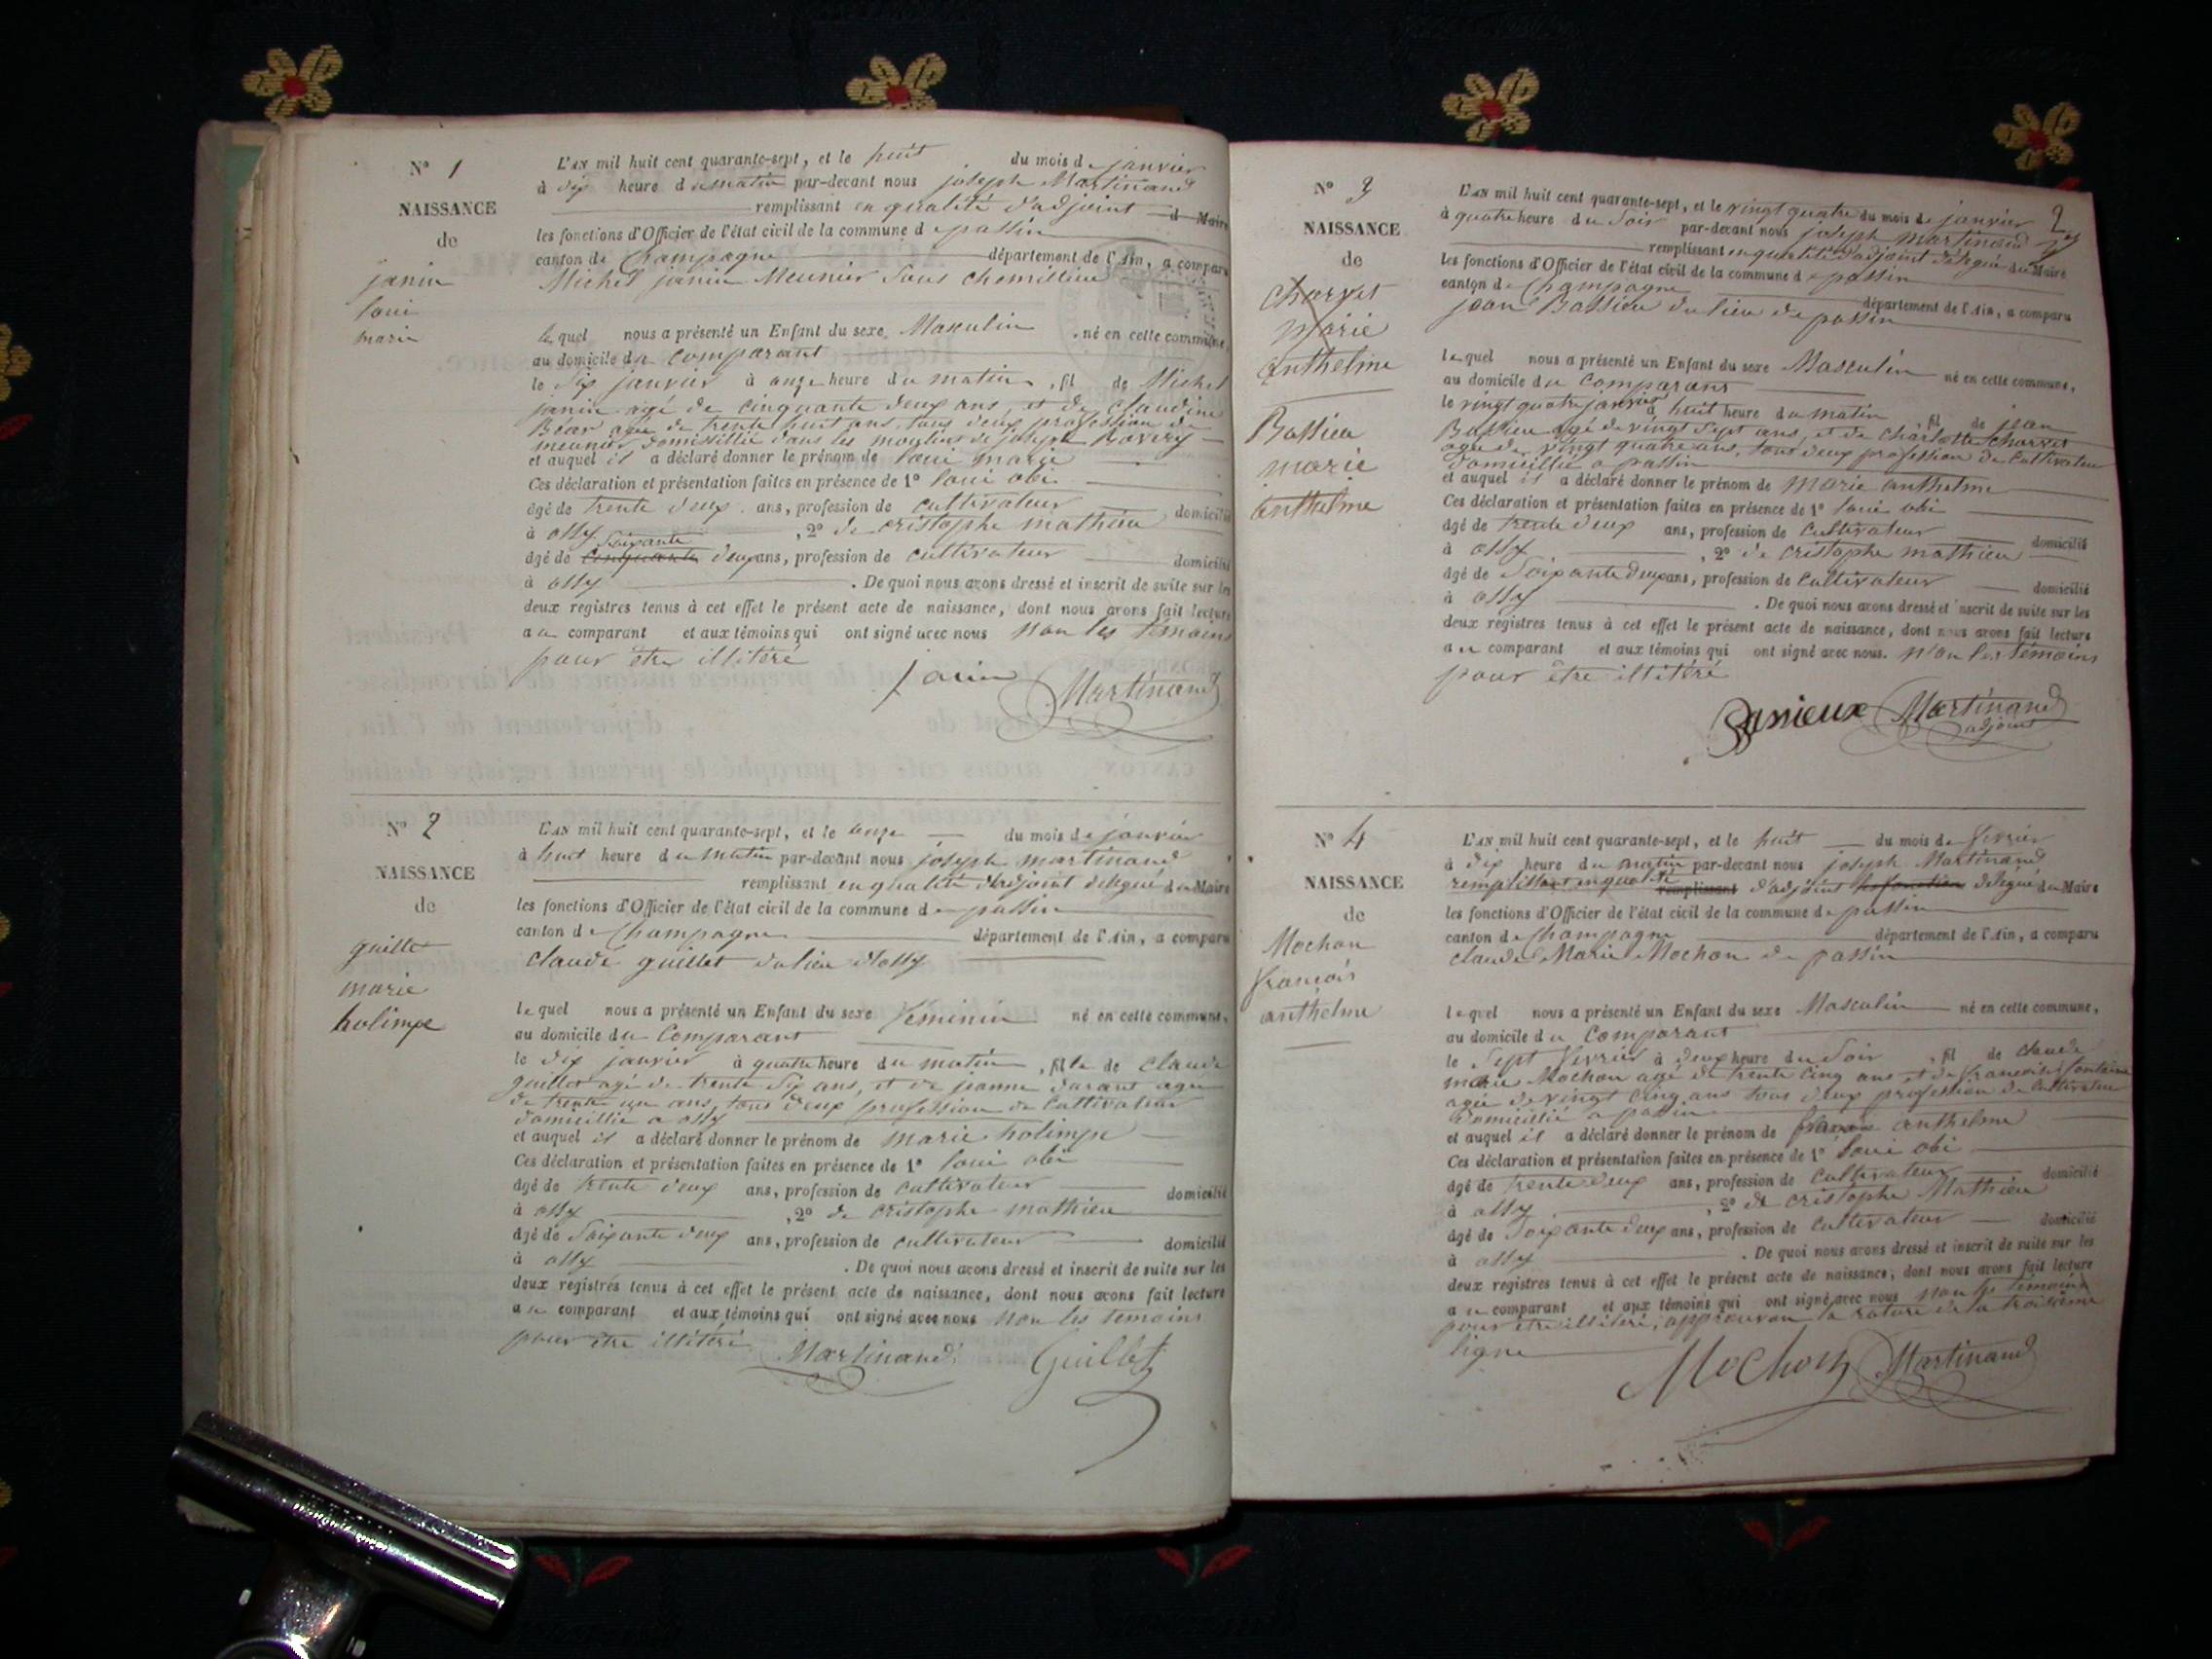 N° 1
NAISSANCE
de
janin
loui
marie
L'AN mil huit cent quarante-sept, et le huit du mois de janvier
à dix heure du matin par-devant nous joseph Martinand
remplissant en qualité d'adjoint d Maire
les fonctions d'Officier de l'état civil de la commune de passin
canton de Champagne département de l'Ain, a comparu
Michel janin Meunier Sous Chemillieu
lequel nous a présenté un Enfant du sexe Masculin né en cette commune,
au domicile du Comparant
le dix janvier à onze heure du matin, fil de Michel
janin agé de cinquante deux ans, et de claudine
agée de trente huit ans, tous deux profession de
meunier, domissillié dans les moulins de joseph
et auquel il a déclaré donner le prénom de loui marie
Ces déclaration et présentation faites en présence de 1° loui obi
âgé de trente deux ans, profession de cultivateur domicilié
à ossy, 2° de cristophe mathieu
soixante
âgé de cinquante deux ans, profession de cultivateur domicilié
à ossy. De quoi nous avons dressé et inscrit de suite sur les
deux registres tenus à cet effet le présent acte de naissance, dont nous avons fait lecture
au comparant et aux témoins qui ont signé avec nous non les témoins
pour être illitéré
janin Martinand
N° 2
NAISSANCE
de
guillet
marie
holimpe
L'AN mil huit cent quarante-sept, et le onze du mois de janvier
à huit heure du matin par-devant nous joseph martinand
remplissant en qualité d'adjoint délégué du Maire
les fonctions d'Officier de l'état civil de la commune de passin
canton de Champagne département de l'Ain, a comparu
claude guillet du lieu d'ossy
lequel nous a présenté un Enfant du sexe féminin né en cette commune,
au domicile du Comparant
le dix janvier à quatre heure du matin, fille de claude
guillet agé de trente six ans, et de jeanne durant agée
de trente un ans, tous deux profession de Cultivateur
domicillié a ossy
et auquel il a déclaré donner le prénom de marie holimpe
Ces déclaration et présentation faites en présence de 1° loui obi
âgé de trente deux ans, profession de cultivateur domicilié
à ossy, 2° de cristophe mathieu
âgé de soixante deux ans, profession de cultivateur domicilié
à ossy. De quoi nous avons dressé et inscrit de suite sur les
deux registres tenus à cet effet le présent acte de naissance, dont nous avons fait lecture
au comparant et aux témoins qui ont signé avec nous non les temoins
pour être illitéré
Martinand Guillet
2
N° 3
NAISSANCE
de
Charvet
marie
anthelme
Bassieu
marie
anthelme
L'AN mil huit cent quarante-sept, et le vingt quatre du mois de janvier
à quatre heure du soir par-devant nous joseph martinand
remplissant en qualité d'adjoint délégué du Maire
les fonctions d'Officier de l'état civil de la commune de passin
canton de Champagne département de l'Ain, a comparu
jean Bassieu du lieu de passin
lequel nous a présenté un Enfant du sexe Masculin né en cette commune,
au domicile du Comparant
le vingt quatre janvier à huit heure du matin, fil de jean
Bassieu agé de vingt sept ans, et de charlotte charvet
agée de vingt quatre ans, tous deux profession de Cultivateur
domicillié a passin
et auquel il a déclaré donner le prénom de marie anthelme
Ces déclaration et présentation faites en présence de 1° loui obi
âgé de trente deux ans, profession de Cultivateur domicilié
à ossy, 2° de cristophe mathieu
âgé de Soixante deux ans, profession de Cultivateur domicilié
à ossy. De quoi nous avons dressé et inscrit de suite sur les
deux registres tenus à cet effet le présent acte de naissance, dont nous avons fait lecture
au comparant et aux témoins qui ont signé avec nous. non les témoins
pour être illitéré
Bassieux Martinand
adjoint
N° 4
NAISSANCE
de
Mochon
françois
anthelme
L'AN mil huit cent quarante-sept, et le huit du mois de fevrier
à dix heure du matin par-devant nous joseph Martinand
remplissant en qualité remplissant d'adjoint délégué du Maire
les fonctions d'Officier de l'état civil de la commune de passin
canton de Champagne département de l'Ain, a comparu
claude Marie Mochon de passin
lequel nous a présenté un Enfant du sexe Masculin né en cette commune,
au domicile du Comparant
le Sept fevrier à deux heure du Soir, fil de claude
marie Mochon agé de trente cinq ans et de françoise fontaine
agée de vingt cinq ans tous deux profession de Cultivateur
domicillié a passin
et auquel il a déclaré donner le prénom de françois anthelme
Ces déclaration et présentation faites en présence de 1° loui obi
âgé de trente deux ans, profession de Cultivateur domicilié
à ossy, 2° de cristophe Mathieu
âgé de Soixante deux ans, profession de cultivateur domicilié
à ossy. De quoi nous avons dressé et inscrit de suite sur les
deux registres tenus à cet effet le présent acte de naissance, dont nous avons fait lecture
au comparant et aux témoins qui ont signé avec nous non les témoins
pour être illitéré, approuvon la rature de la troisième
ligne
Mochon Martinand